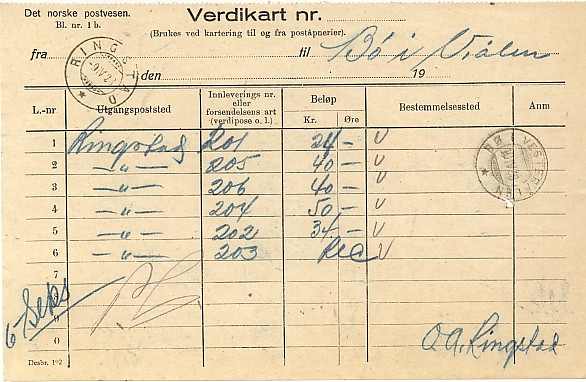 Det norske postvesen.
Bl. nr. 1 b.
Verdikart nr.
(Brukes ved kartering til og fra poståpnerier.)
fra til Bø i Vålen
RINGSTAD
den 19
L.-nr. Utgangspoststed Innleverings nr. eller forsendelsens art (verdipose o. l.) Beløp Kr. Øre Bestemmelsessted Anm
1 Ringstad 201 24 — V
2 — " — 205 40 — V
3 — " — 206 40 — V
4 — " — 204 50 — V
5 — " — 202 34 — V
6 — " — 203 Rec V
BØ I VESTERÅLEN
7
8
9
0
6 Seks
O A. Ringstad